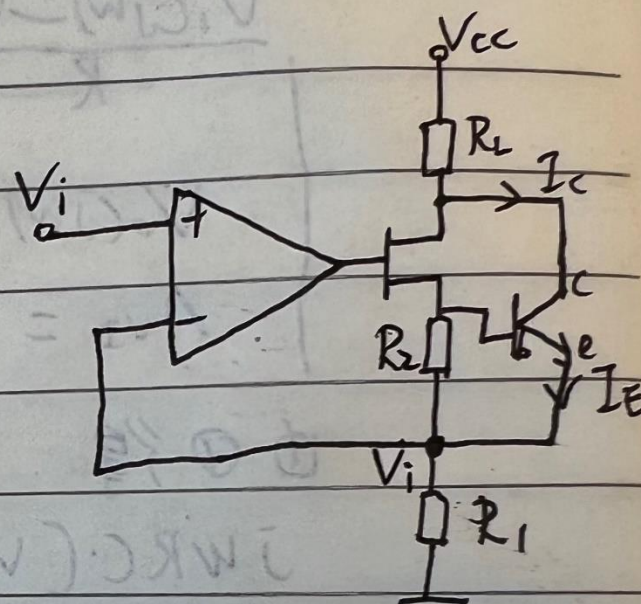 Vcc
RL
Ic
Vi
+
−
c
R2
b
e
IE
Vi
R1